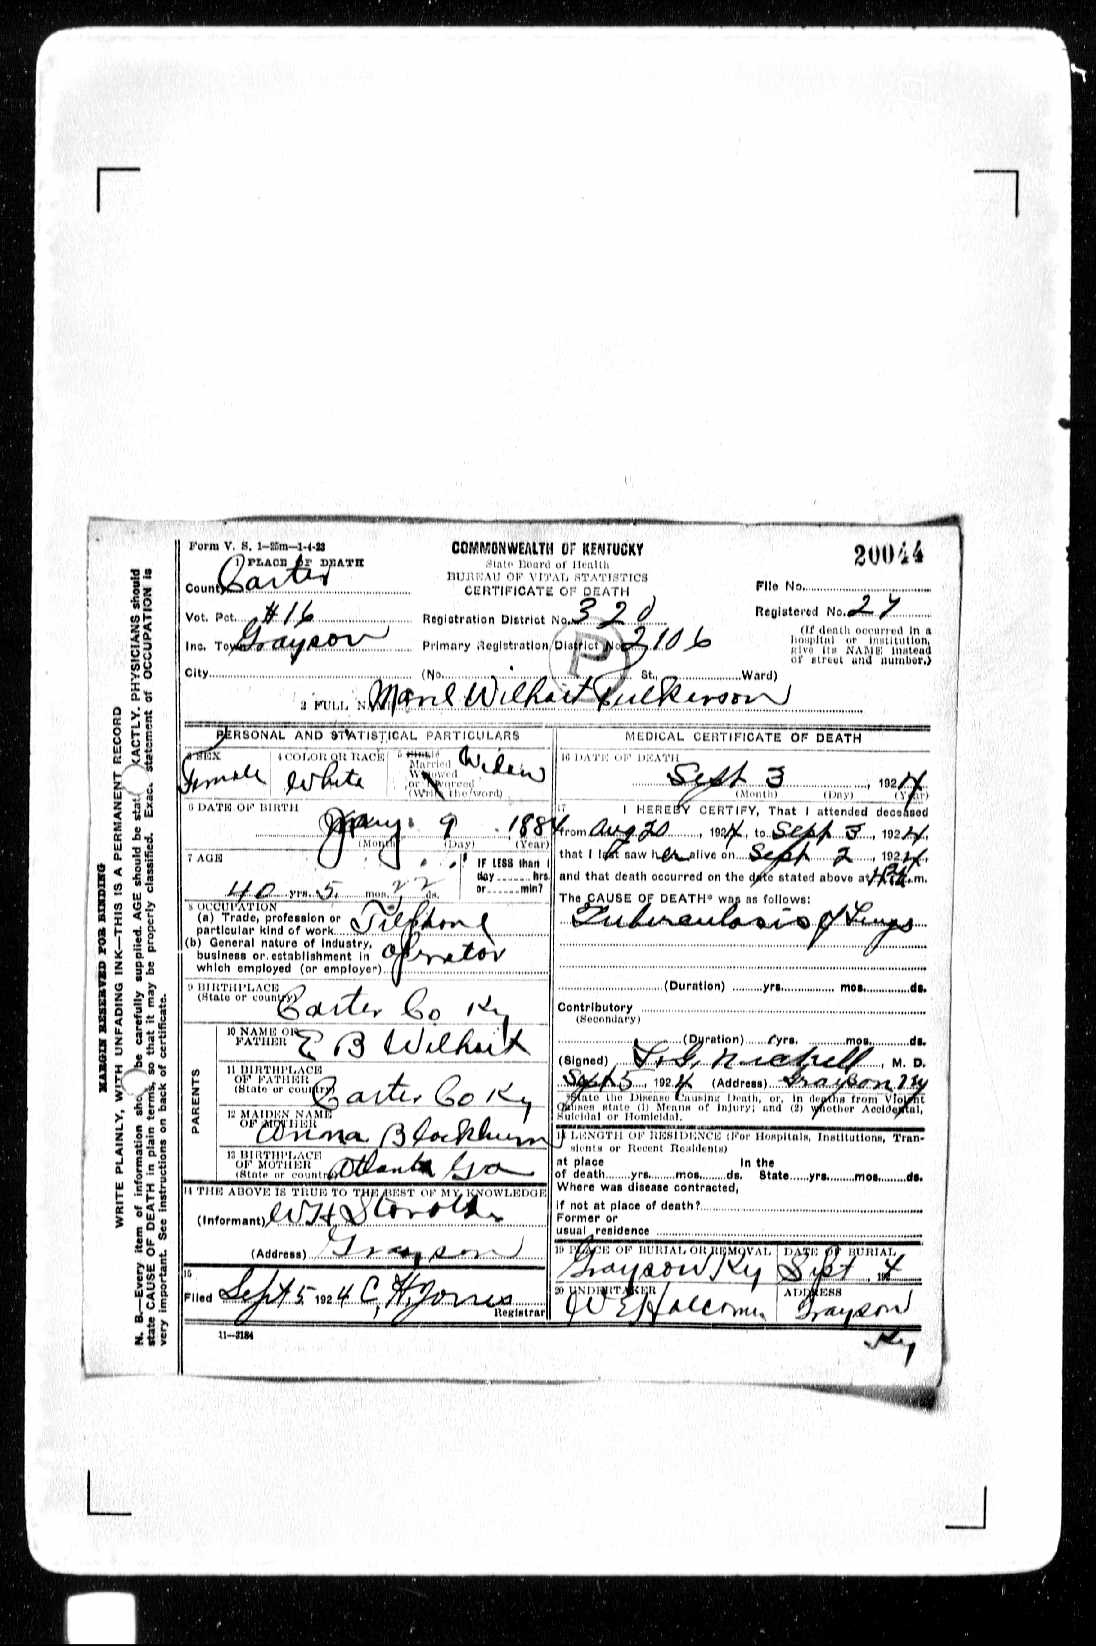 Form V. S. 1-25m-1-4-23
COMMONWEALTH OF KENTUCKY
20044
1 PLACE OF DEATH
State Board of Health
BUREAU OF VITAL STATISTICS
CERTIFICATE OF DEATH
County Carter
File No.
Vot. Pct. #16
Registration District No. 320
Registered No. 27
Inc. Town Grayson
Primary Registration District No. 2106
P
(If death occurred in a hospital or institution, give its NAME instead of street and number.)
City
(No. St., Ward)
2 FULL NAME Wilhoit Fulkerson
PERSONAL AND STATISTICAL PARTICULARS
3 SEX
Female
4 COLOR OR RACE
White
5 Single
Married
Widowed
or Divorced
(Write the word)
Widow
6 DATE OF BIRTH
9 1884
(Month) (Day) (Year)
7 AGE
40 yrs. 5 mos. 22 ds.
IF LESS than 1
day hrs.
or min?
8 OCCUPATION
(a) Trade, profession or
particular kind of work Telphone
(b) General nature of industry,
business or establishment in
which employed (or employer) Operator
9 BIRTHPLACE
(State or country) Carter Co Ky
PARENTS
10 NAME OF
FATHER E B Wilhoit
11 BIRTHPLACE
OF FATHER
(State or country) Carter Co Ky
12 MAIDEN NAME
OF MOTHER Anna Blackburn
13 BIRTHPLACE
OF MOTHER
(State or country) Atlanta Ga
14 THE ABOVE IS TRUE TO THE BEST OF MY KNOWLEDGE
(Informant) W H
(Address) Grayson
15
Filed Sept 5, 1924 C. H. Jones
Registrar
11-3184
MEDICAL CERTIFICATE OF DEATH
16 DATE OF DEATH
Sept 3 1924
(Month) (Day) (Year)
17 I HEREBY CERTIFY, That I attended deceased
from Aug 20, 1924, to Sept 3, 1924,
that I last saw her alive on Sept 2, 1924,
and that death occurred on the date stated above at m.
The CAUSE OF DEATH* was as follows:
Tuberculosis of Lungs
(Duration) yrs. mos. ds.
Contributory
(Secondary)
(Duration) yrs. mos. ds.
(Signed) Nickell, M. D.
Sept 5, 1924 (Address) Grayson Ky
*State the Disease Causing Death, or, in deaths from Violent
Causes state (1) Means of Injury; and (2) whether Accidental,
Suicidal or Homicidal.
18 LENGTH OF RESIDENCE (For Hospitals, Institutions, Tran-
sients or Recent Residents)
at place In the
of death yrs. mos. ds. State yrs. mos. ds.
Where was disease contracted,
if not at place of death?
Former or
usual residence
19 PLACE OF BURIAL OR REMOVAL
Grayson Ky
DATE OF BURIAL
Sept 4
20 UNDERTAKER
W E Holcomb
ADDRESS
Grayson
Ky
MARGIN RESERVED FOR BINDING
WRITE PLAINLY, WITH UNFADING INK—THIS IS A PERMANENT RECORD
N. B.—Every item of information sho be carefully supplied. AGE should be stat XACTLY. PHYSICIANS should
state CAUSE OF DEATH in plain terms, so that it may be properly classified. Exac statement of OCCUPATION is
very important. See instructions on back of certificate.